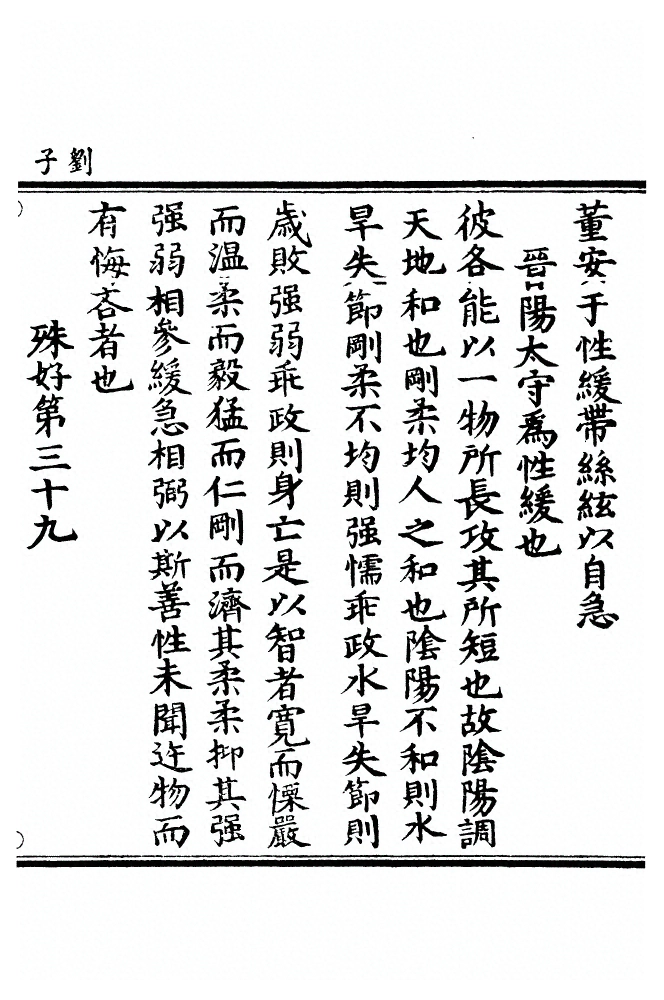 劉子
董安于性緩帶絲絃以自急
晉陽太守爲性緩也
彼各能以一物所長攻其所短也故陰陽調
天地和也剛柔均人之和也陰陽不和則水
旱失節剛柔不均則强懦乖政水旱失節則
歲敗强弱乖政則身亡是以智者寬而慄嚴
而温柔而毅猛而仁剛而濟其柔柔抑其强
强弱相參緩急相弼以斯善性未聞迕物而
有悔吝者也
殊好第三十九